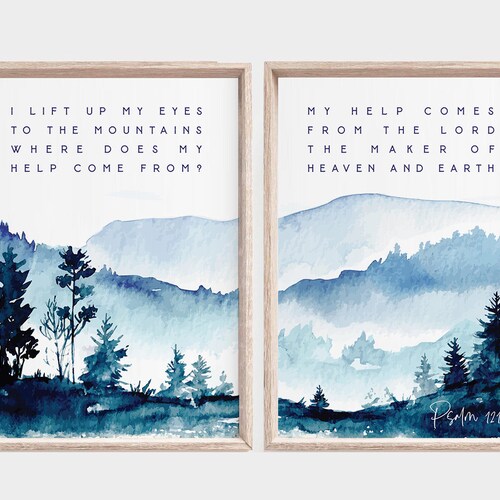 I LIFT UP MY EYES
TO THE MOUNTAINS
WHERE DOES MY
HELP COME FROM?
MY HELP COMES
FROM THE LORD
THE MAKER OF
HEAVEN AND EARTH
Psalm 121